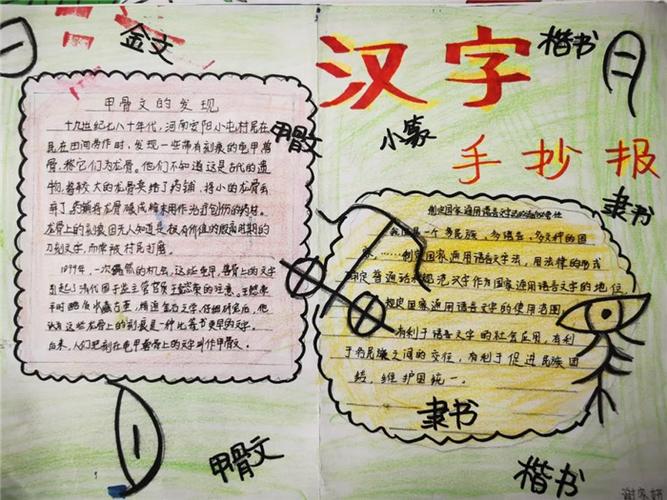 金文
汉字
楷书
小篆
手抄报
隶书
甲骨文
甲骨文的发现
十九世纪七八十年代，河南安阳小屯村民在
在田间劳作时，发现一些带有刻痕的龟甲兽
骨，称它们为龙骨。他们不知道这是古代的遗
物，着较大的龙骨卖给了药铺，将小的龙骨
龙骨上的刻痕但无人知道是极有价值的殷商时期的
刻文字，而常被村民刮磨。
1899年，一次偶然的机会，这些龟甲、兽骨上的文字
引起了清代国子监主管官员王懿荣的注意。王懿荣
平时酷爱收藏古董，精通金石文字，仔细研究后，他
认为这些龙骨上的刻痕是一种比篆书更早的文字。
后来，人们把刻在龟甲兽骨上的文字叫作甲骨文。
制定国家通用语言文字法的
我国是一个多民族，多语言，多文种的国
家，……制定国家通用语言文字法，用法律的形式
确定普通话和规范汉字作为国家通用语言文字的地位，
规定国家通用语言文字的使用范围
有利于语言文字的社会应用，有利
于各民族之间的交往，有利于促进民族团
结，维护国统一。
隶书
甲骨文
楷书